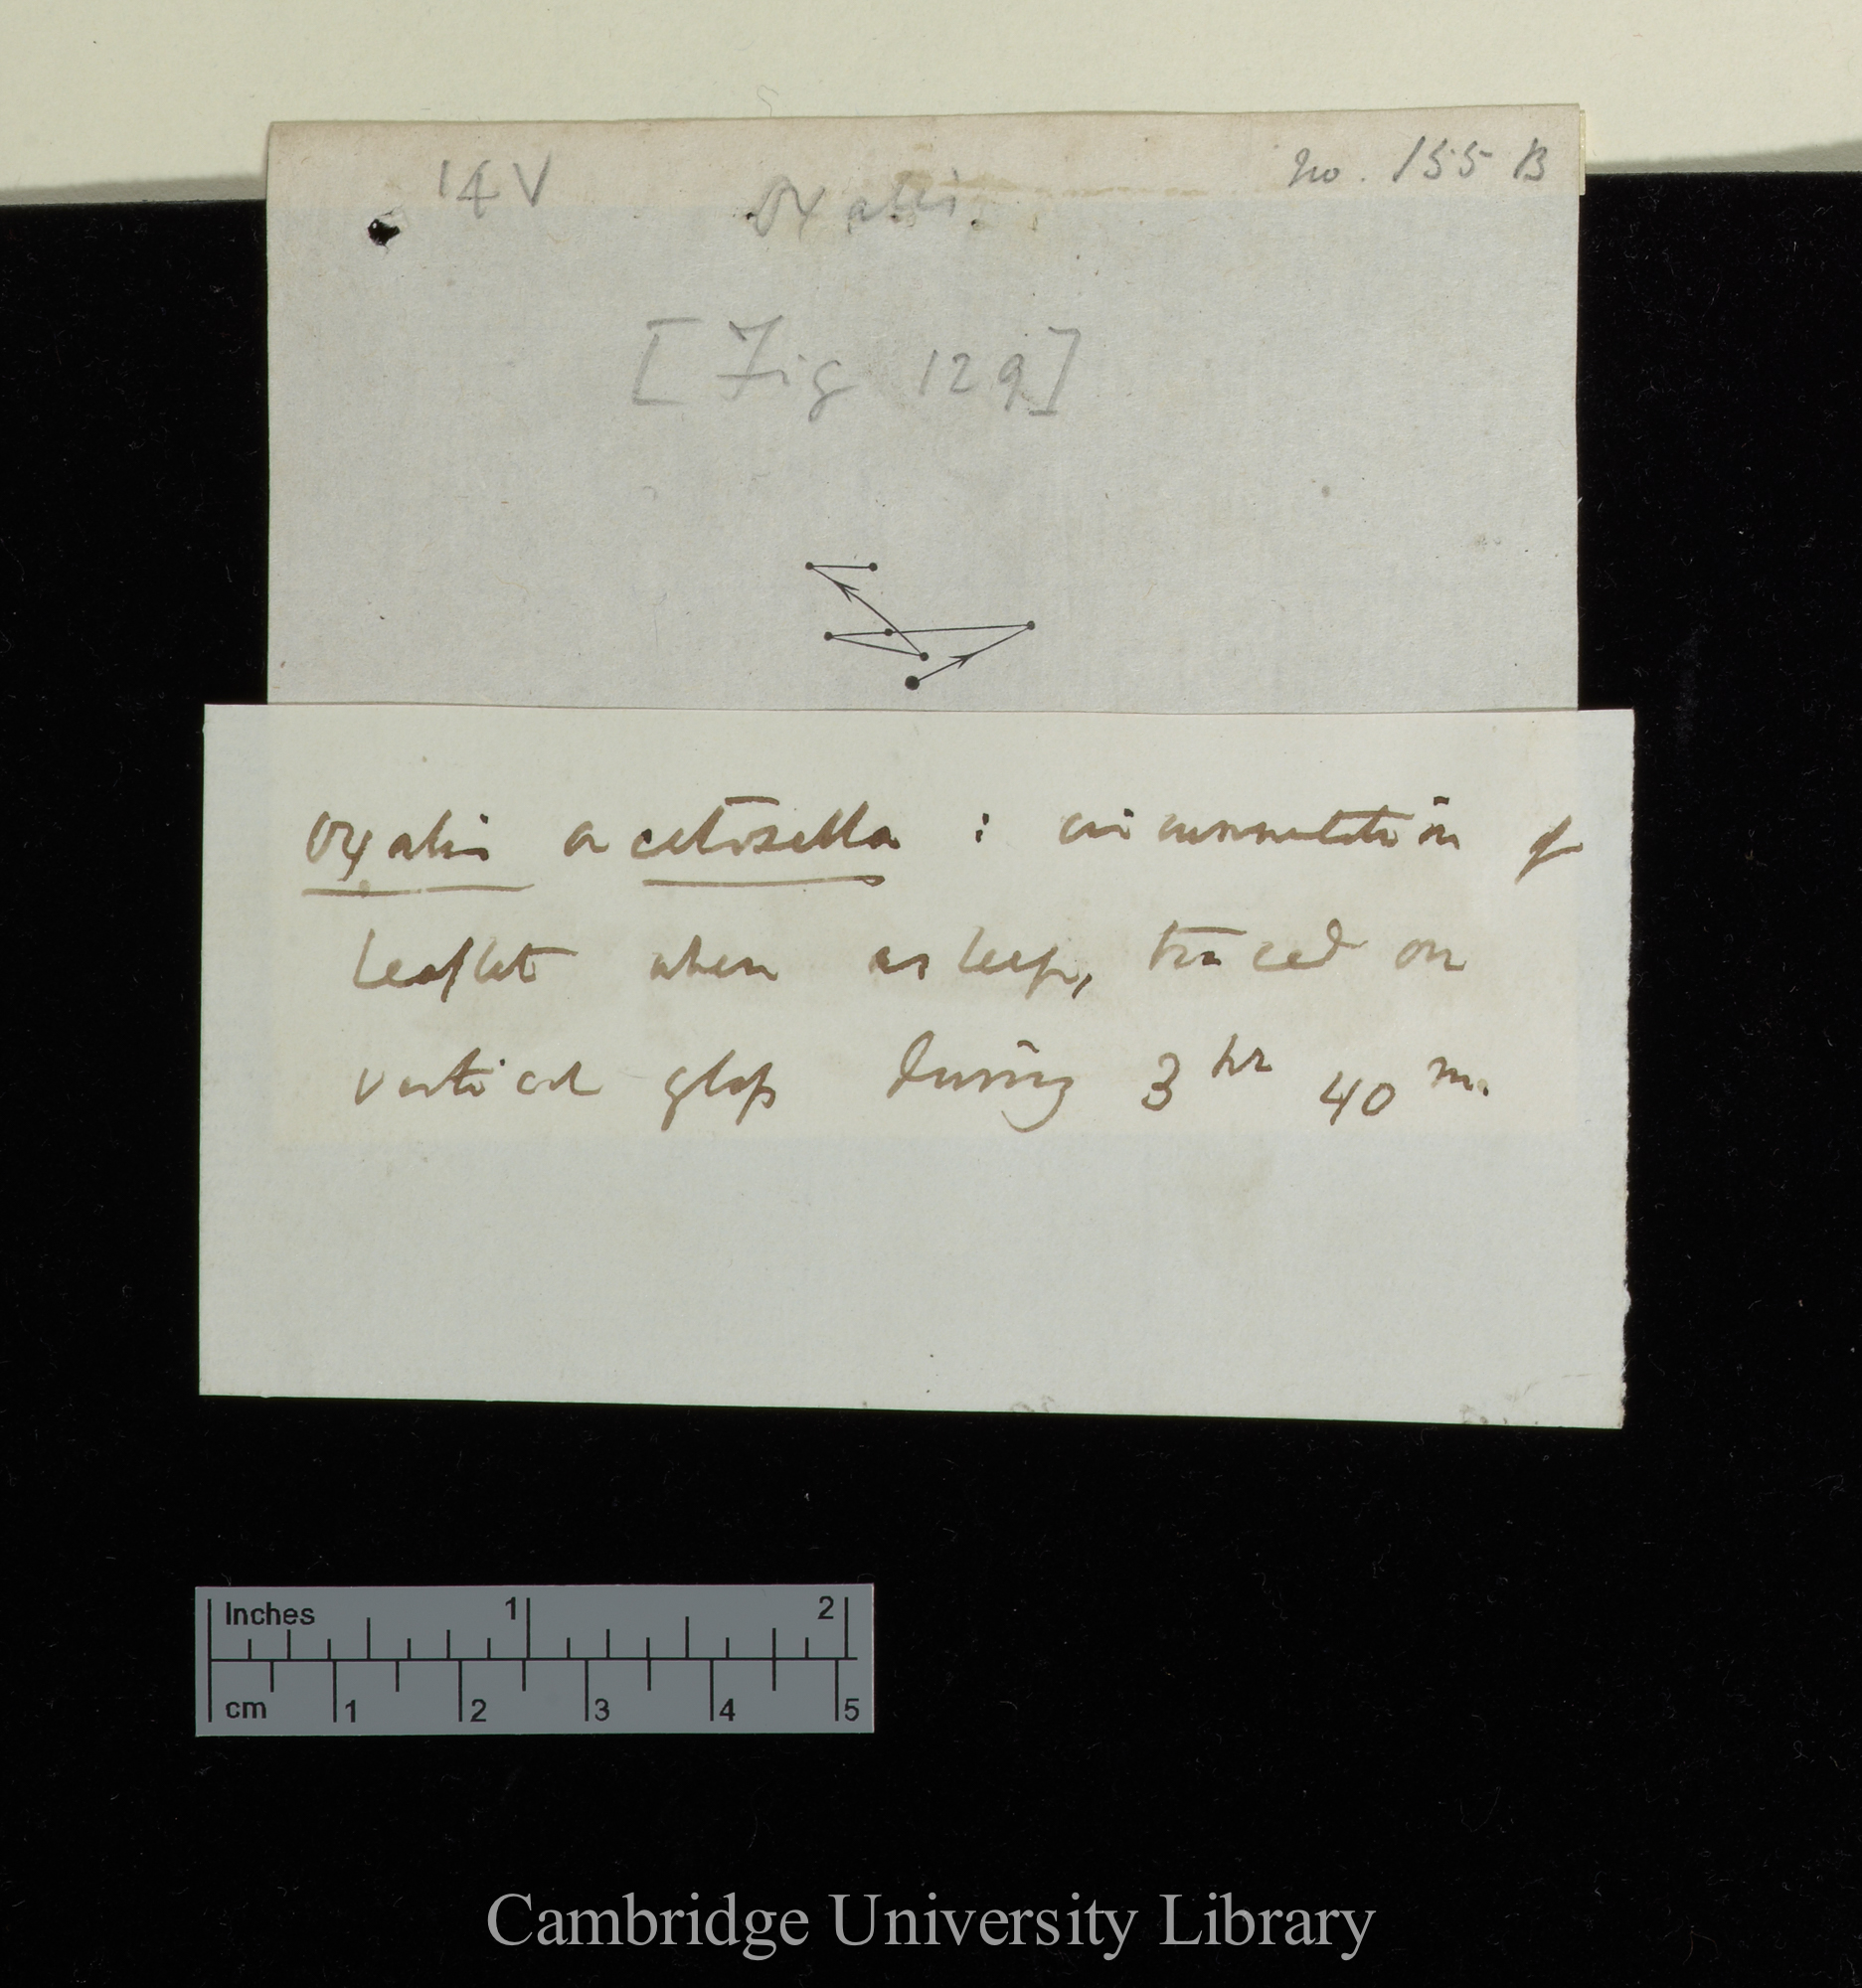 14 V Oxalis no. 155 B
[Fig 129]
Oxalis acetosella : circumnutation of
leaflet when asleep, traced on
vertical glass during 3 hr 40 m.
Inches 1 2
cm 1 2 3 4 5
Cambridge University Library